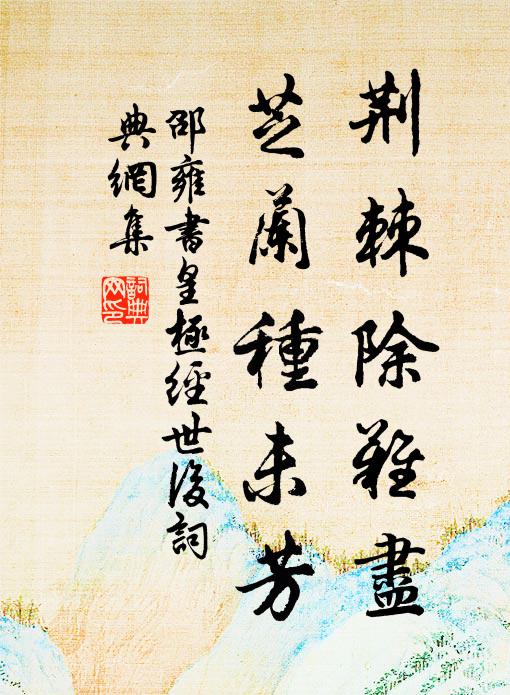 荆棘除難盡
芝蘭種未芳
邵雍書皇極經世後詞
典網集
詞典
网印